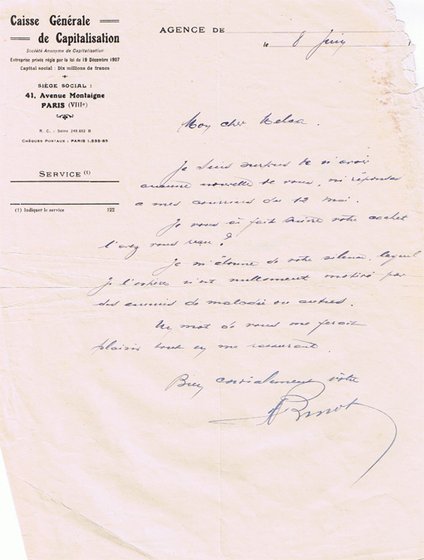 Caisse Générale
de Capitalisation
Société Anonyme de Capitalisation
Entreprise privée régie par la loi du 19 Décembre 1907
Capital social : Dix millions de francs
SIÈGE SOCIAL :
41, Avenue Montaigne
PARIS (VIIIe)
R. C. - Seine 249.662 B
CHÈQUES POSTAUX : PARIS 1.235-69
SERVICE (1)
(1) Indiquer le service 122
AGENCE DE
le 8 Juin
Mon cher
Je suis surpris de n'avoir
aucune nouvelle de vous, ni réponse
a mes courriers du 12 mai.
Je vous ai fait suivre votre cachet
l'avez vous reçu ?
Je m'étonne de votre silence, lequel
je l'espère n'est nullement motivé par
des ennuis de maladie ou autres.
Un mot de vous me ferait
plaisir tout en me rassurant.
Bien cordialement vôtre